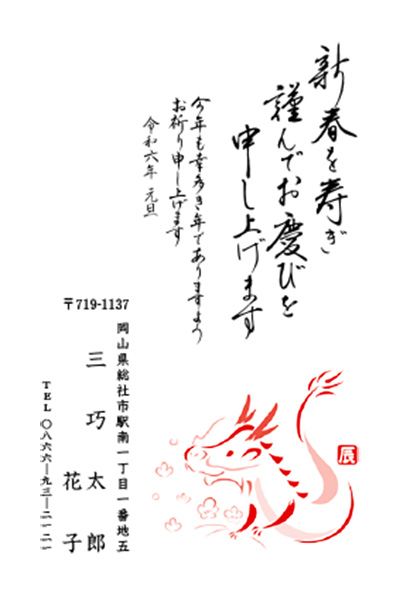 新春を寿ぎ
謹んでお慶びを
申し上げます
今年も幸多き年でありますよう
お祈り申し上げます
令和六年 元旦
〒719-1137
岡山県総社市駅南一丁目一番地五
三巧太郎
花子
TEL〇八六六―九三―二一二一
辰